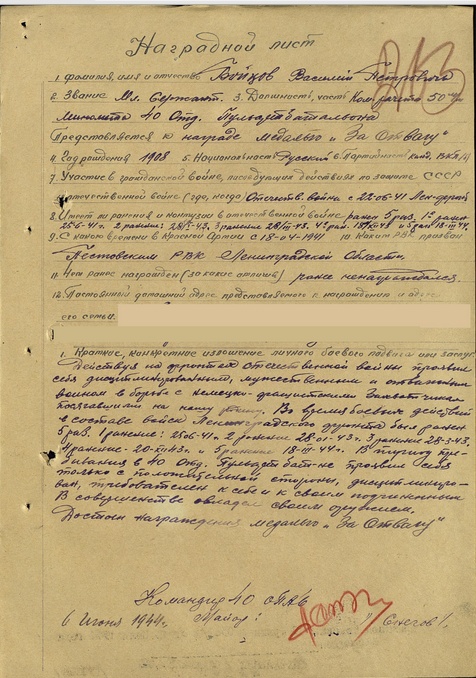 Наградной лист
1. Фамилия, имя и отчество Бойцов Василий Петрович
2. Звание Мл. Сержант. 3. Должность, часть Ком. расчета 50 м/м
Миномета 40 Отд. Пульартбатальона
Представляется к награде медалью „За Отвагу"
4. Год рождения 1908 5. Национальность Русский 6. Партийность канд. ВКП(б)
7. Участие в гражданской войне, последующих действиях по защите СССР
и отечественной войне (где, когда) Отечеств. война с 22-06-41 Лен. фронт
8. Имеет ли ранения и контузии в отечественной войне ранен 5 раз. 1е ранен.
25-6-41 г. 2 ранение: 28/I-43. 3 ранение 28/III-43. 4 ран. 18-III-44.
9. С какого времени в Красной Армии с 18-IV-1941 10. Каким РВК призван
Пестовским РВК Ленинградской Области.
11. Чем ранее награжден (за какие отличия) ранее ненаграждался.
12. Постоянный домашний адрес представляемого к награждению и адрес
его семьи.
1. Краткое, конкретное изложение личного боевого подвига или заслуг.
Действуя на фронтах отечественной войны проявил
себя дисциплинированным, мужественным и отважным
воином в борьбе с немецко-фашистскими захватчиками
посягавшими на нашу родину. Во время боевых действий
в составе войск Ленинградского фронта был ранен
5 раз. 1 ранение: 25-06-41 г. 2 ранение 28-01-43 г. 3 ранение 28-3-43.
4 ранение - 20-XII-43 г. и 5 ранение 18-III-44 г. В период пре-
бывания в 40 Отд. Пульартбат-не проявил себя
только с положительной стороны, дисциплиниро-
ван, требователен к себе и к своим подчиненным
В совершенстве овладел своим оружием.
Достоин награждения медалью „За Отвагу"
Командир 40 ОПАБ
6 Июня 1944 г. Майор: /Снегов/.